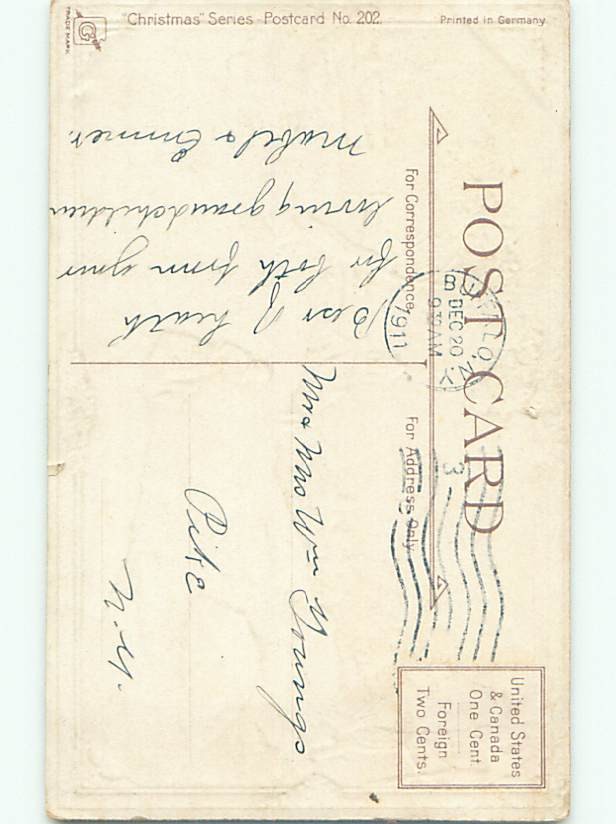 "Christmas" Series Postcard No. 202.
Printed in Germany.
TRADE MARK.
POST CARD
For Correspondence
For Address Only
United States
& Canada
One Cent.
Foreign
Two Cents.
BUFFALO, N.Y.
DEC 20
930 AM
1911
3
Best of health
for both from your
loving grandchildren
Mabel & Emmet.
Mr & Mrs Wm Youngs
Pike
N.Y.